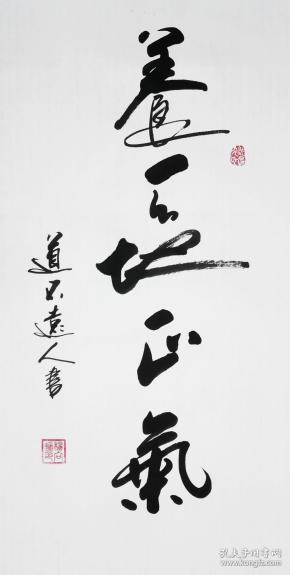 養天地正氣
道不遠人書
孔夫子旧书网
www.kongfz.com